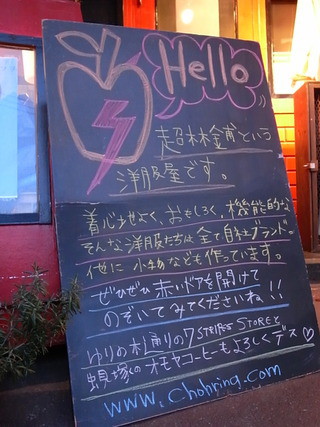 Hello
超林檎甫という
洋服屋です。
着心地よく、おもしろく、機能的な
そんな洋服たちは全て自社ブランド。
他に小物なども作っています。
ぜひぜひ赤いドアを開けて
のぞいてみてくださいね!!
ゆりの木通りの7 STRIPES STOREと
蜆塚のオモヤコーヒーもよろしくデス♡
www.chohring.com